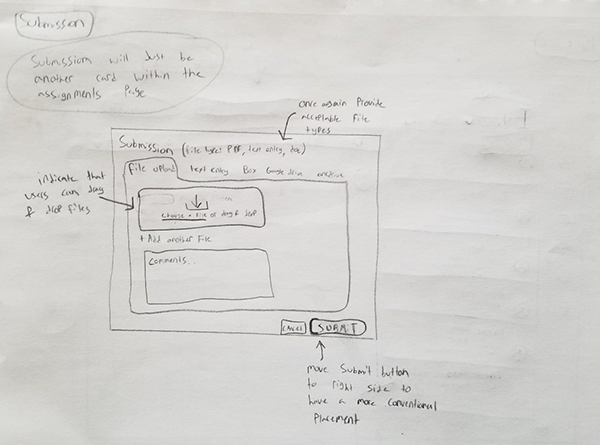 Submission
Submission will Just be
another card within the
assignments Page
once again Provide
acceptable File
types
Submission (file type: PDF, text entry, doc)
File upload text entry Box Google drive onedrive
indicate that
users can drag
& drop files
Choose a file or drag & drop
+ Add another File
Comments..
CANCEL SUBMIT
move Submit button
to right side to
have a more conventional
Placement